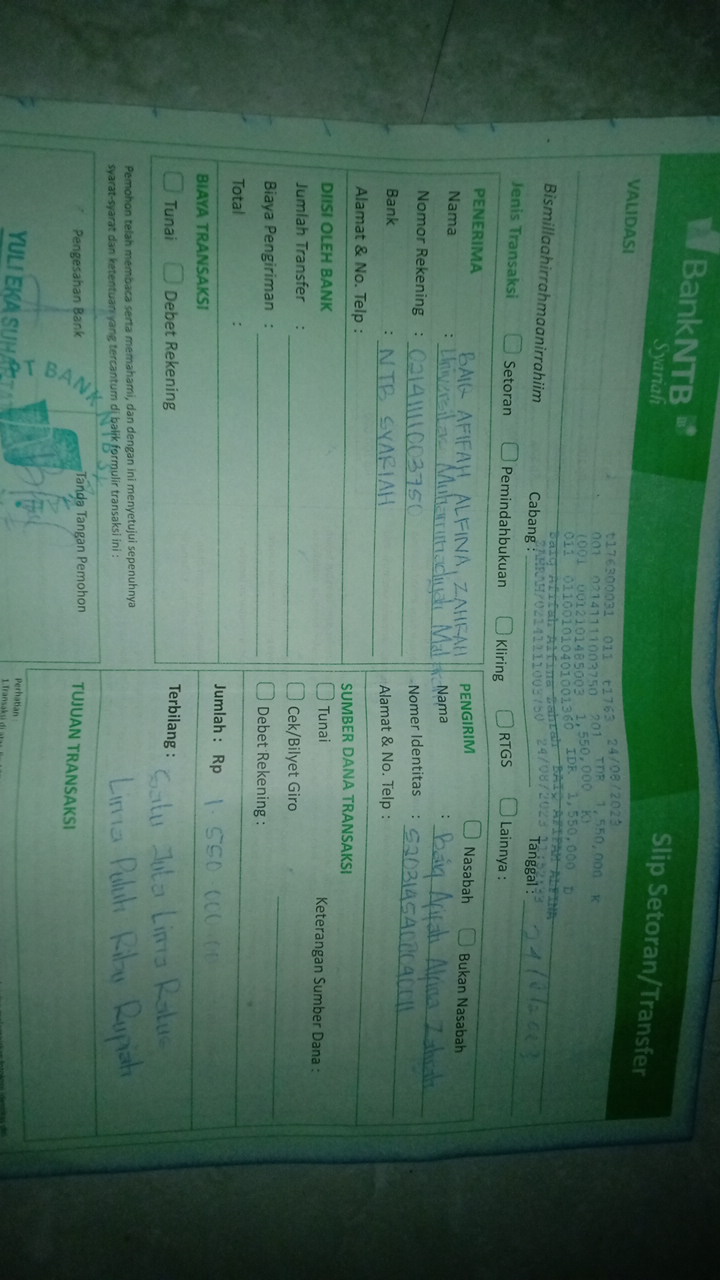 BankNTB
Syariah
Slip Setoran/Transfer
VALIDASI
t176300031 011 t1763 24/08/2023
001 02141111003750 201 IDR 1,550,000 K
(001 0012101485003 1,550,000 K)
011 0110010104001001360 IDR 1,550,000 D
Baiq Afifah Alfina Zahrah BAIQ AFIFAH ALFINA
Bismillaahirrahmaanirrahiim
Cabang :
Tanggal :
Jenis Transaksi
Setoran
Pemindahbukuan
Kliring
RTGS
Lainnya :
PENERIMA
Nama : BAIQ AFIFAH ALFINA ZAHRAH
Universitas Muhammadiyah
Nomor Rekening :
Bank : NTB SYARIAH
Alamat & No. Telp :
PENGIRIM
Nasabah
Bukan Nasabah
Nama : Baiq Afifah Alfina Zahrah
Nomer Identitas :
Alamat & No. Telp :
DIISI OLEH BANK
Jumlah Transfer :
Biaya Pengiriman :
Total :
SUMBER DANA TRANSAKSI
Tunai
Keterangan Sumber Dana :
Cek/Bilyet Giro
Debet Rekening :
BIAYA TRANSAKSI
Tunai
Debet Rekening
Jumlah : Rp 1.550.000
Terbilang : Satu Juta Lima Ratus
Lima Puluh Ribu Rupiah
Pemohon telah membaca serta memahami, dan dengan ini menyetujui sepenuhnya
syarat-syarat dan ketentuan yang tercantum di balik formulir transaksi ini :
Pengesahan Bank
Tanda Tangan Pemohon
YULI EKA
BANK NTB
TUJUAN TRANSAKSI
Perhatian :